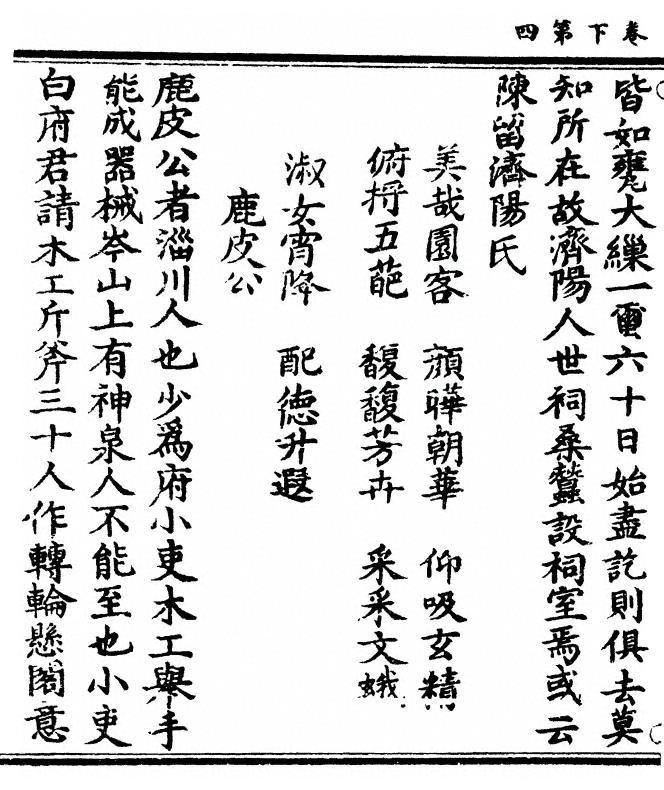 卷下第四
皆如甕大繅一蠒六十日始盡訖則俱去莫
知所在故濟陽人世祠桑蠶設祠室焉或云
陳留濟陽氏
美哉園客 顏曄朝華 仰吸玄精
俯捋五葩 馥馥芳卉 采采文蛾
淑女宵降 配德升遐
鹿皮公
鹿皮公者淄川人也少爲府小吏木工舉手
能成器械岑山上有神泉人不能至也小吏
白府君請木工斤斧三十人作轉輪懸閣意